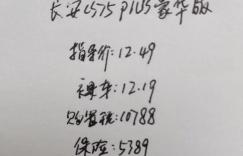 长安CS75 PLUS豪华版
指导价:12.49
裸车:12.19
购置税:10788
保险:5389